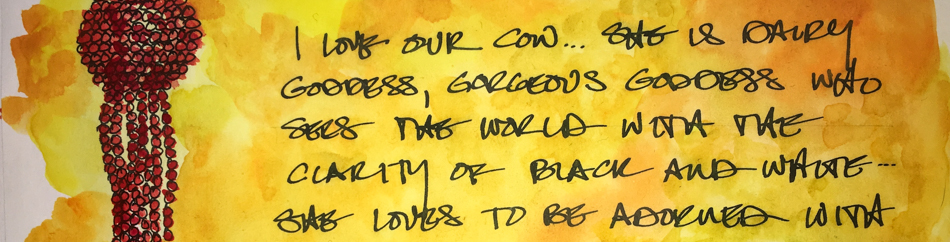 I LOVE OUR COW... SHE IS DAIRY
GODDESS, GORGEOUS GODDESS WHO
SEES THE WORLD WITH THE
CLARITY OF BLACK AND WHITE...
SHE LOVES TO BE ADORNED WITH